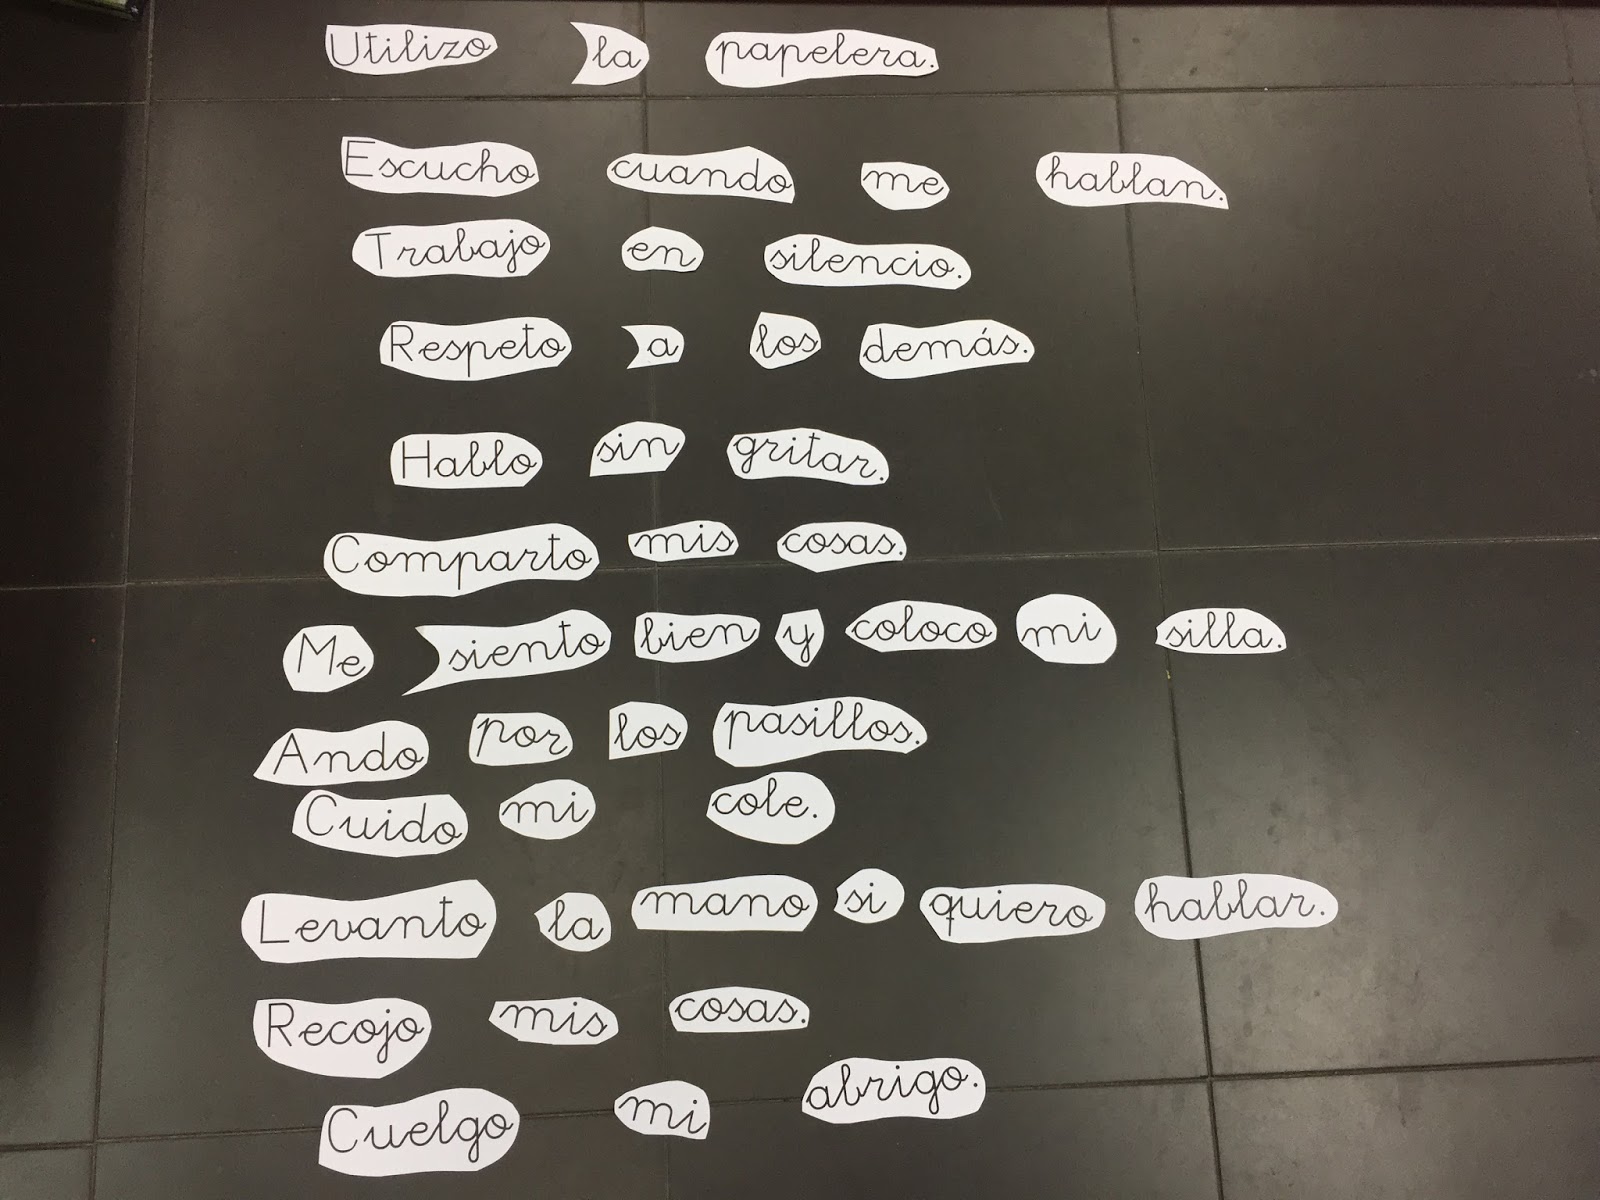 Utilizo la papelera.
Escucho cuando me hablan.
Trabajo en silencio.
Respeto a los demás.
Hablo sin gritar.
Comparto mis cosas.
Me siento bien y coloco mi silla.
Ando por los pasillos.
Cuido mi cole.
Levanto la mano si quiero hablar.
Recojo mis cosas.
Cuelgo mi abrigo.